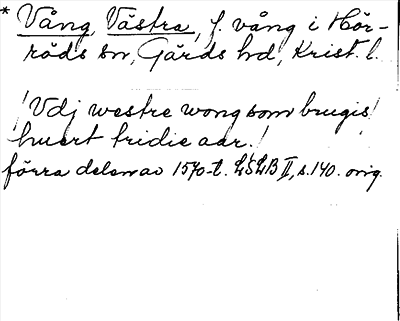 * Vång, Västra, f. vång i Hör-
röds sn, Gärds hd, Krist. l.
/Vdj westre wong som brugis/
/huert tridie aar./
förra delen av 1570-t. LSLB II, s. 140. orig.